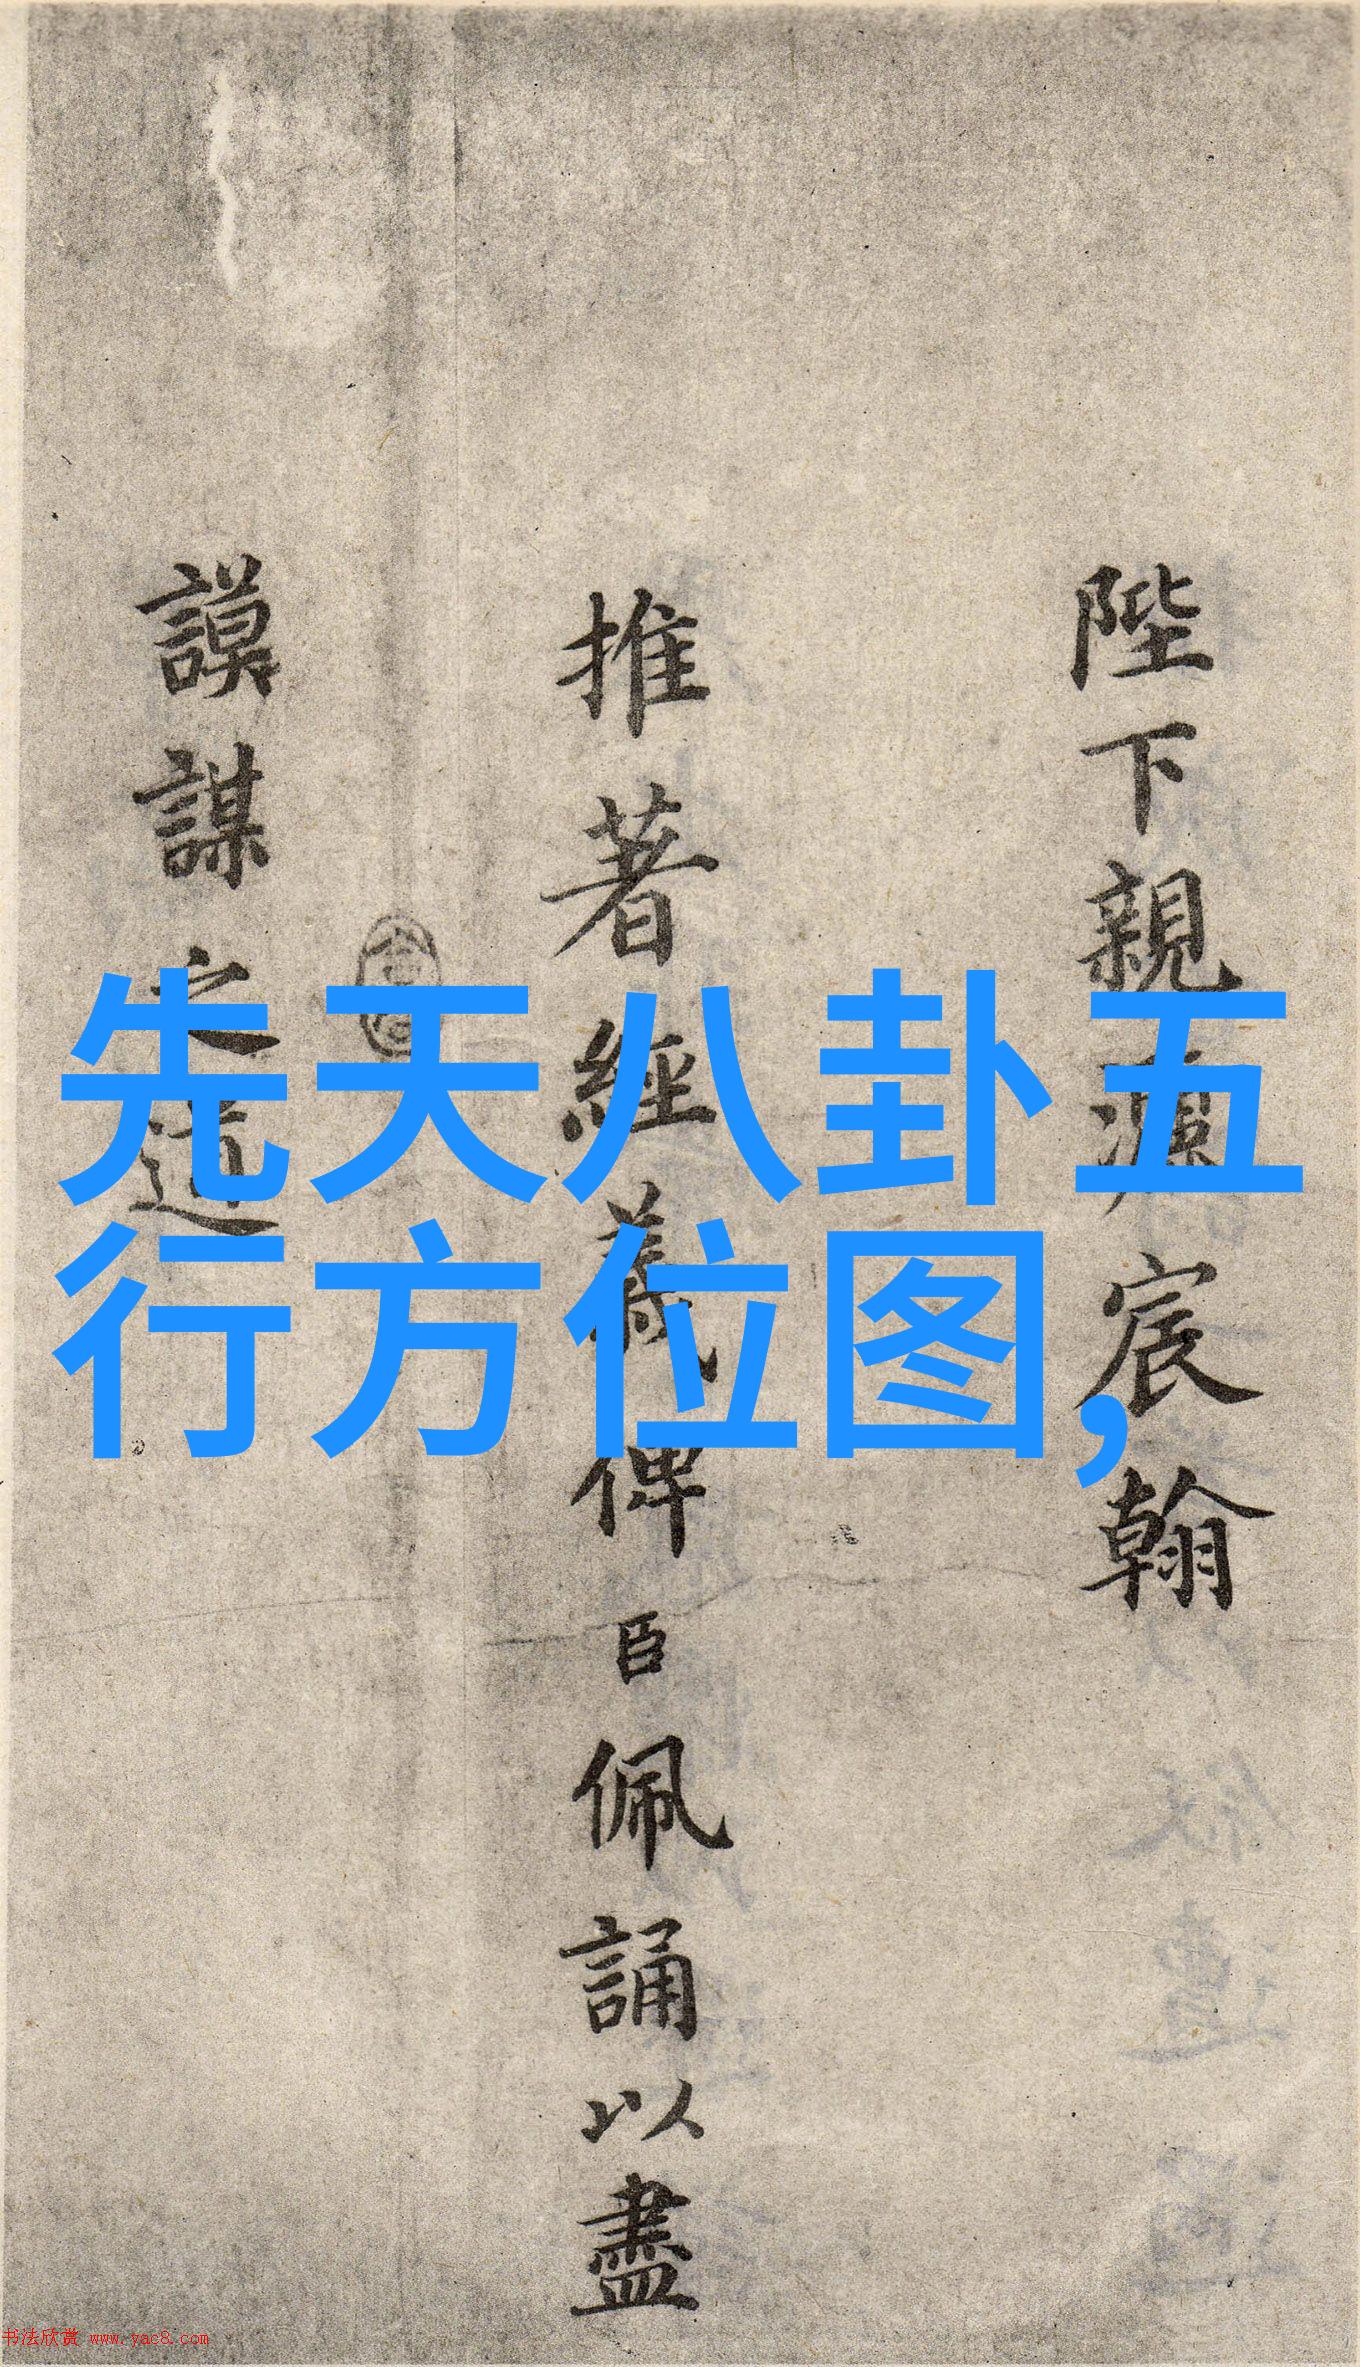 陛下親灑宸翰
推著經義俾臣佩誦以盡
謨謀之道
先天八卦五
行方位图,
书法欣赏 www.yac8.com